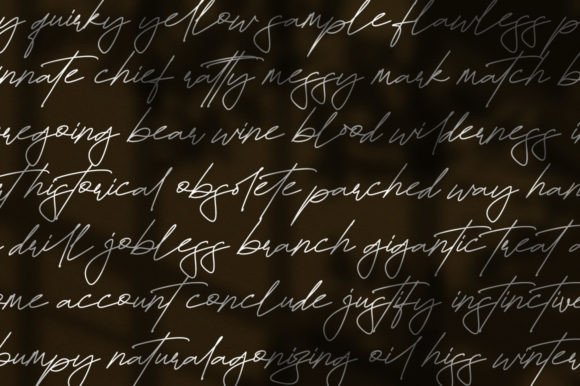 y quirky yellow sample flawless p
innate chief ratty messy mark match b
regoing bear wine blood wilderness i
historical obsolete parched way han
drill jobless branch gigantic treat a
ome account conclude justify instinctive
bumpy naturalagonizing oil hiss winter